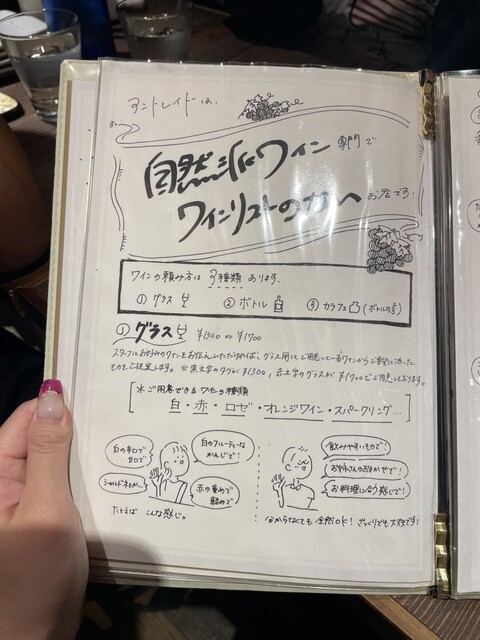 アントレイドは、
自然派ワイン 専門で
ワインリストのカヘ お店です!
ワインの頼み方は 3種類 あります。
① グラス ② ボトル ③ カラフェ (ボトルの½)
① グラス ¥1300 or ¥1700
スタッフにお好みのワインをお伝えいただければ、グラス用にご用意しているワインからご要望に沿った
ものをご提案します。※黒文字のタグが¥1300、赤文字のグラスが¥1700でご用意しております。
※ご用意できるワインの種類
白・赤・ロゼ・オレンジワイン・スパークリング...
白の辛口で 甘口で
白のフルーティーな かんじで!
シャルドネとか...
赤の重めで 軽めで!
たとえば こんな感じ。
飲みやすいもので!
お姉さんのおまかせで!
お料理に合う感じで!
分からなくても全然OK! ざっくりでも大丈夫です!